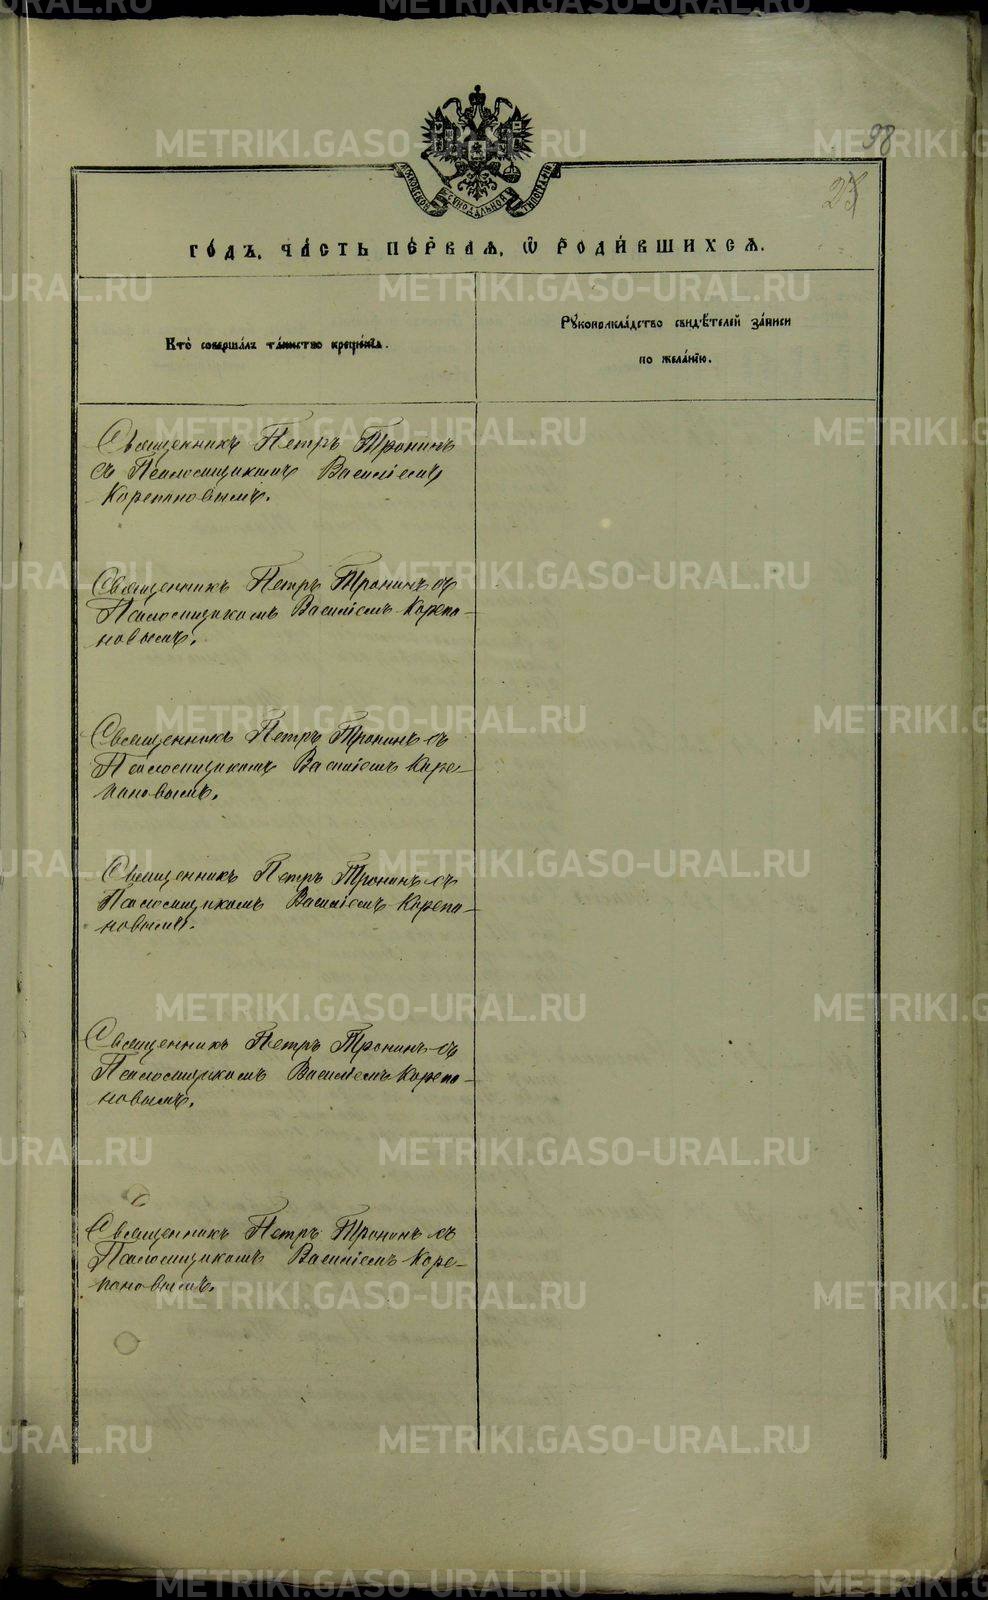 98
25
МОСКОВСКОЙ СѴНОДАЛЬНОЙ ТИПОГРАФІИ
ГО́ДЪ, ЧА́СТЬ ПЕ́РВАѦ, Ѿ РОДИ́ВШИХСѦ.
Кто̀ соверша́лъ та́инство креще́нїѧ.
Рꙋкоприкла́дство свидѣ́телей за́писи
по жела́нїю.
Священникъ Петръ Тронинъ
съ Псаломщикомъ Василіемъ
Корепановымъ.
Священникъ Петръ Тронинъ съ
Псаломщикомъ Василіемъ Корепа-
новымъ.
Священникъ Петръ Тронинъ съ
Псаломщикомъ Василіемъ Коре-
пановымъ.
Священникъ Петръ Тронинъ съ
Псаломщикомъ Василіемъ Корепа-
новымъ.
Священникъ Петръ Тронинъ съ
Псаломщикомъ Василіемъ Корепа-
новымъ.
Священникъ Петръ Тронинъ съ
Псаломщикомъ Василіемъ Коре-
пановымъ.
METRIKI.GASO-URAL.RU